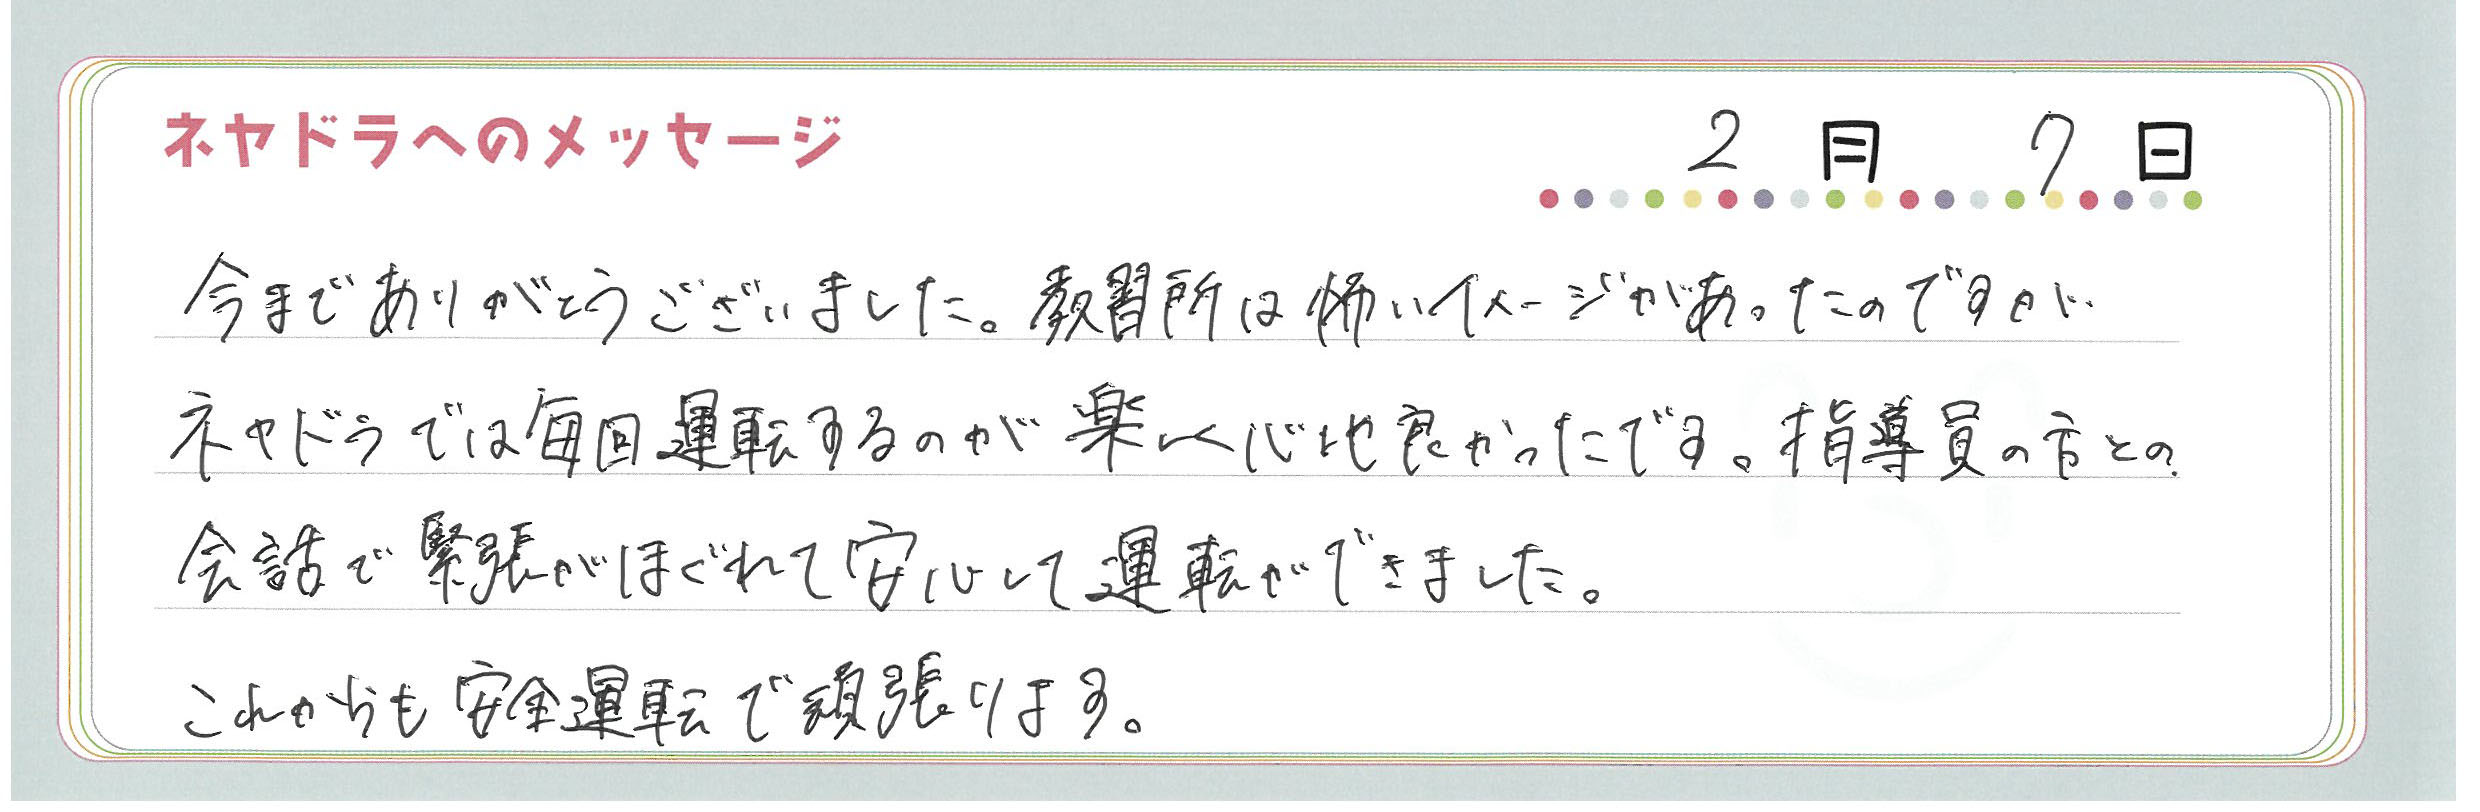 ネヤドラへのメッセージ
2月7日
今までありがとうございました。教習所は怖いイメージがあったのですが
ネヤドラでは毎回運転するのが楽しく心地良かったです。指導員の方との
会話で緊張がほぐれて安心して運転ができました。
これからも安全運転で頑張ります。